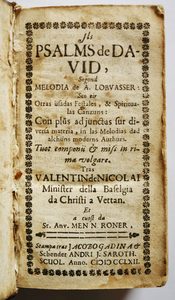 Ils
PSALMS de DA-
VID,
Segond
MELODIA de A. LOBVASSER:
Sco eir
Otras usadas Festales, & Spiritua-
las Canzuns:
Con plüs adjunctas sur di-
versa materia, in las Melodias dad
alchüns moderns Authurs.
Tuot componü & miss in ri-
ma volgare.
Tras
VALENTIN de NICOLAI
Minister della Baselgia
da Christi a Vettan.
Et
a cust da
Sr. Anv. MEN N. RONER,
Stampa tras JACOBO GADINA &
Schender ANDRI J. SAROTH.
SCUOL. Anno.